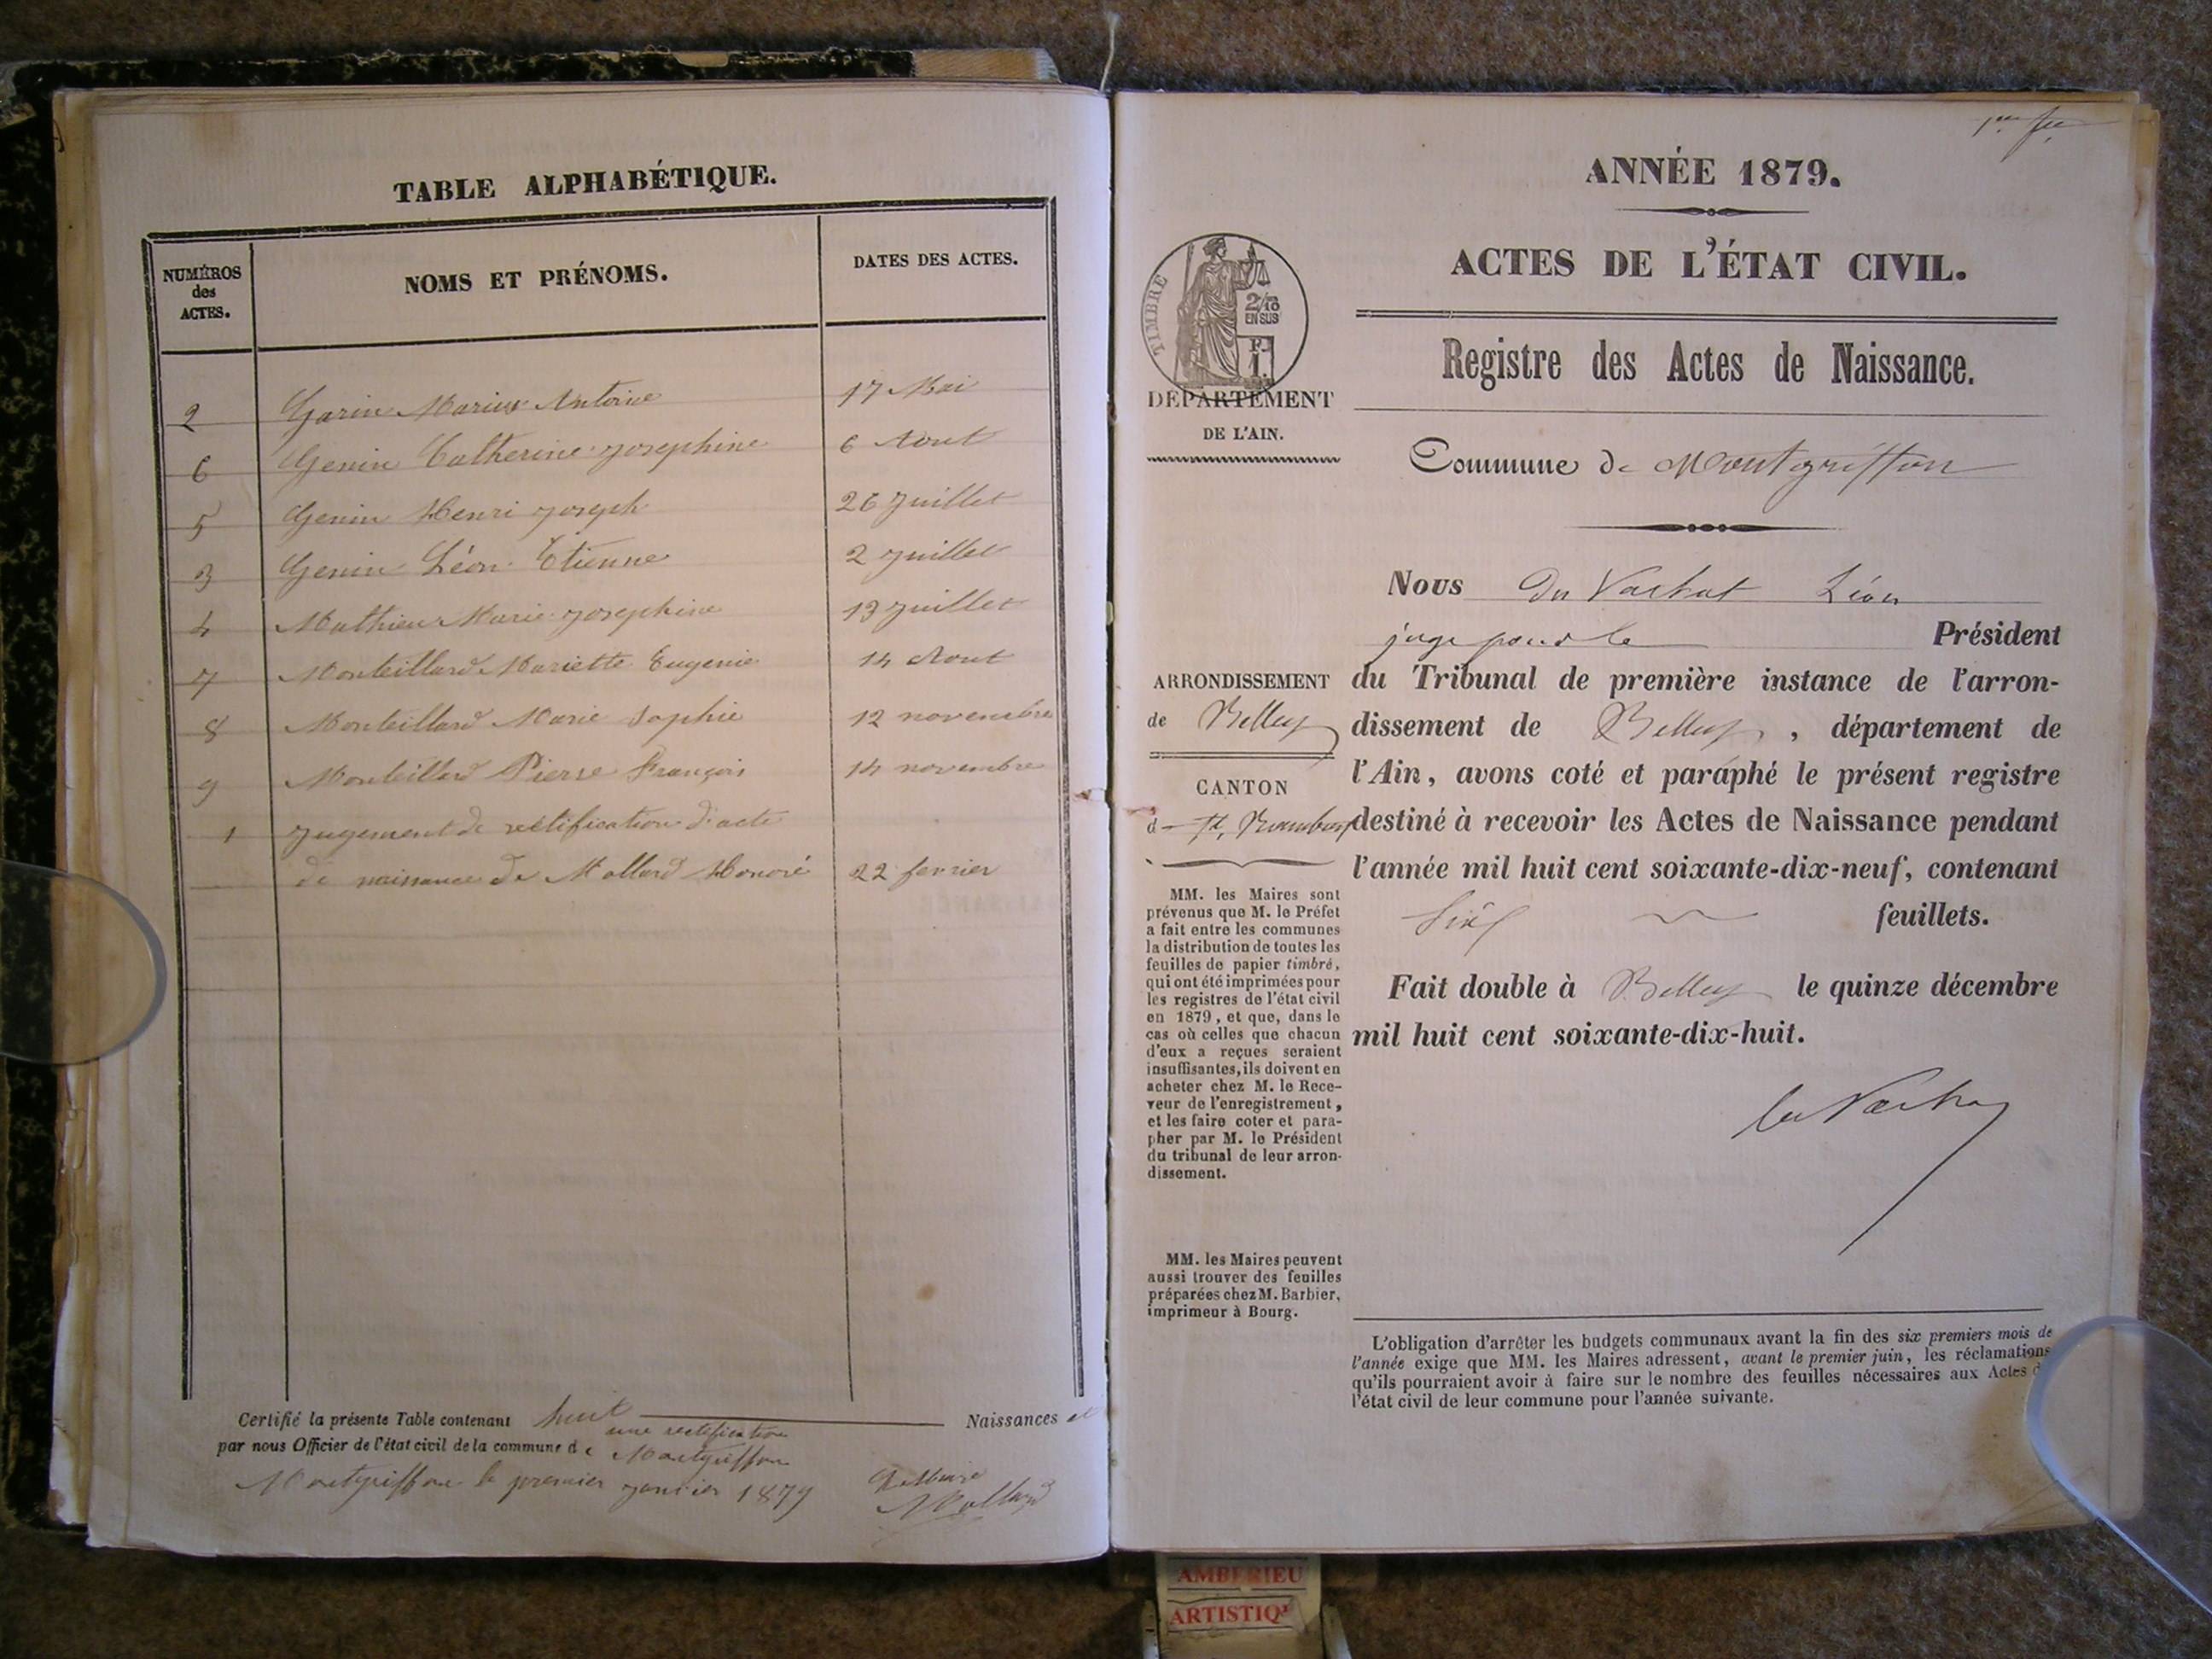 TABLE ALPHABÉTIQUE.
NUMÉROS
des
ACTES.
NOMS ET PRÉNOMS.
DATES DES ACTES.
2 Garin Marius Antoine 17 Mai
6 Genin Catherine Josephine 6 Aout
5 Genin Henri Joseph 26 Juillet
3 Genin Léon Etienne 2 Juillet
4 Mathieu Marie Josephine 13 Juillet
7 Monteillard Mariette Eugenie 14 Aout
8 Monteillard Marie Sophie 12 novembre
9 Monteillard Pierre François 14 novembre
1 Jugement de rectification d'acte
de naissance de Mollard Honoré 22 fevrier
Certifié la présente Table contenant huit Naissances et
une rectification
par nous Officier de l'état civil de la commune de Montgriffon
Montgriffon le premier janvier 1879
Le Maire
Mollard
1er fet
ANNÉE 1879.
ACTES DE L'ÉTAT CIVIL.
Registre des Actes de Naissance.
TIMBRE
2/10
EN SUS
DÉPARTEMENT
DE L'AIN.
Commune de Montgriffon
Nous Du Vachat Léon
juge pour le Président
du Tribunal de première instance de l'arron-
dissement de Belley, département de
l'Ain, avons coté et paraphé le présent registre
destiné à recevoir les Actes de Naissance pendant
l'année mil huit cent soixante-dix-neuf, contenant
six feuillets.
Fait double à Belley le quinze décembre
mil huit cent soixante-dix-huit.
Du Vachat
ARRONDISSEMENT
de Belley
CANTON
d St Rambert
MM. les Maires sont
prévenus que M. le Préfet
a fait entre les communes
la distribution de toutes les
feuilles de papier timbré,
qui ont été imprimées pour
les registres de l'état civil
en 1879, et que, dans le
cas où celles que chacun
d'eux a reçues seraient
insuffisantes, ils doivent en
acheter chez M. le Rece-
veur de l'enregistrement,
et les faire coter et para-
pher par M. le Président
du tribunal de leur arron-
dissement.
MM. les Maires peuvent
aussi trouver des feuilles
préparées chez M. Barbier,
imprimeur à Bourg.
L'obligation d'arrêter les budgets communaux avant la fin des six premiers mois de
l'année exige que MM. les Maires adressent, avant le premier juin, les réclamations
qu'ils pourraient avoir à faire sur le nombre des feuilles nécessaires aux Actes d
l'état civil de leur commune pour l'année suivante.
AMBERIEU
ARTISTIQ